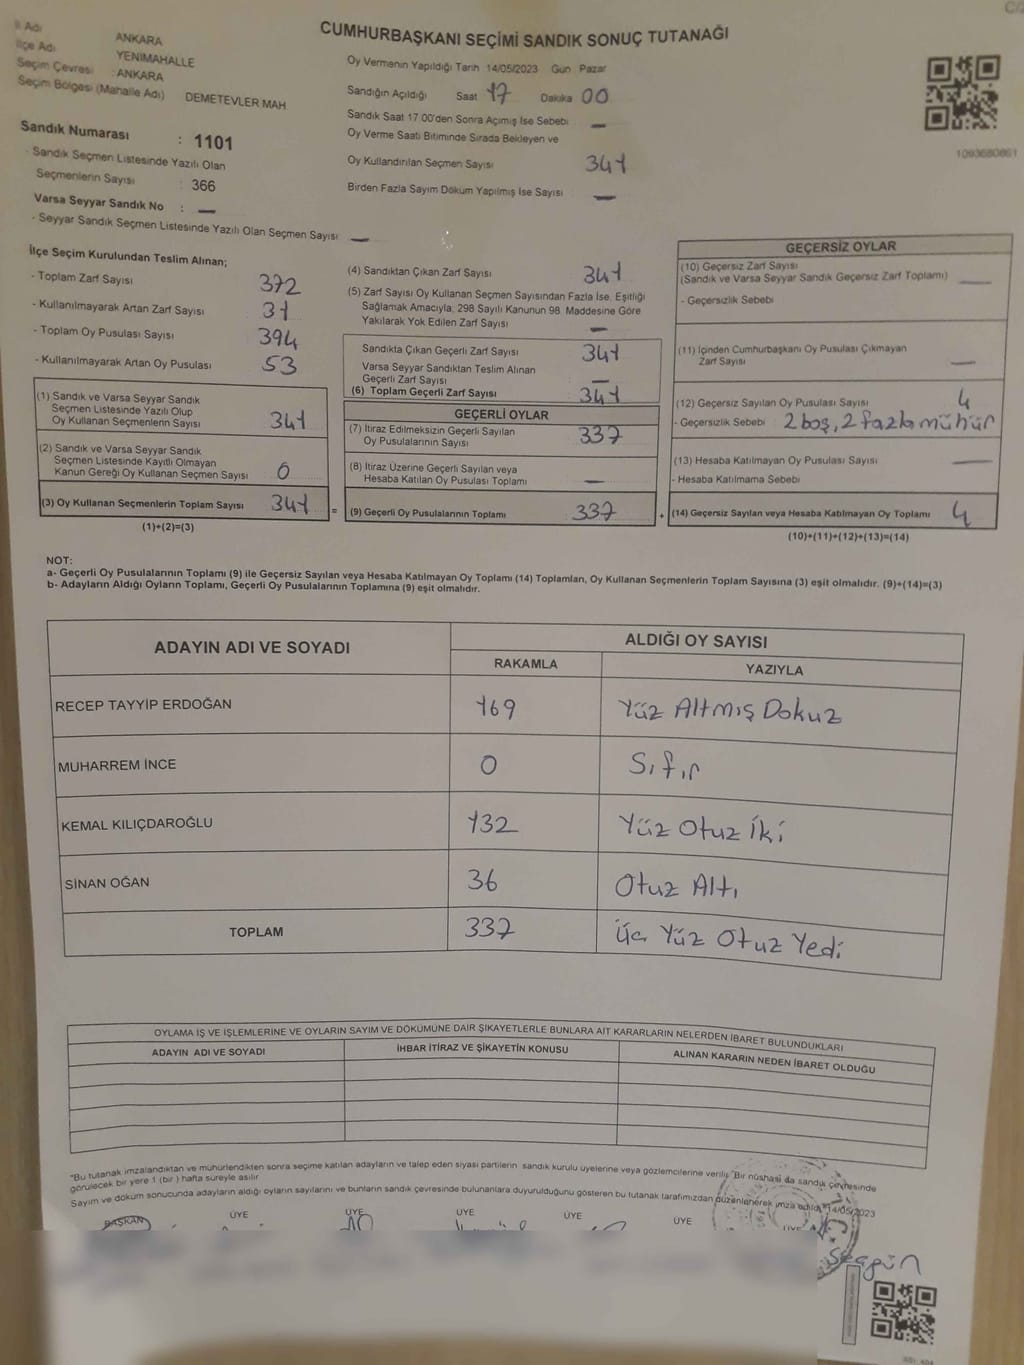 CUMHURBAŞKANI SEÇİMİ SANDIK SONUÇ TUTANAĞI
İl Adı ANKARA
İlçe Adı YENİMAHALLE
Seçim Çevresi : ANKARA
Seçim Bölgesi (Mahalle Adı) DEMETEVLER MAH
Sandık Numarası : 1101
- Sandık Seçmen Listesinde Yazılı Olan
Seçmenlerin Sayısı : 366
Varsa Seyyar Sandık No : —
- Seyyar Sandık Seçmen Listesinde Yazılı Olan Seçmen Sayısı —
Oy Vermenin Yapıldığı Tarih 14/05/2023 Gün Pazar
Sandığın Açıldığı Saat 17 Dakika 00
Sandık Saat 17 00'den Sonra Açımış İse Sebebi —
Oy Verme Saati Bitiminde Sırada Bekleyen ve
Oy Kullandırılan Seçmen Sayısı 341
Birden Fazla Sayım Döküm Yapılmış İse Sayısı —
1093680861
İlçe Seçim Kurulundan Teslim Alınan;
- Toplam Zarf Sayısı 372
- Kullanılmayarak Artan Zarf Sayısı 31
- Toplam Oy Pusulası Sayısı 394
- Kullanılmayarak Artan Oy Pusulası 53
(1) Sandık ve Varsa Seyyar Sandık
Seçmen Listesinde Yazılı Olup
Oy Kullanan Seçmenlerin Sayısı 341
(2) Sandık ve Varsa Seyyar Sandık
Seçmen Listesinde Kayıtlı Olmayan
Kanun Gereği Oy Kullanan Seçmen Sayısı 0
(3) Oy Kullanan Seçmenlerin Toplam Sayısı 341 =
(1)+(2)=(3)
(4) Sandıktan Çıkan Zarf Sayısı 341
(5) Zarf Sayısı Oy Kullanan Seçmen Sayısından Fazla İse, Eşitliği
Sağlamak Amacıyla, 298 Sayılı Kanunun 98. Maddesine Göre
Yakılarak Yok Edilen Zarf Sayısı —
Sandıkta Çıkan Geçerli Zarf Sayısı 341
Varsa Seyyar Sandıktan Teslim Alınan
Geçerli Zarf Sayısı —
(6) Toplam Geçerli Zarf Sayısı 341
GEÇERLİ OYLAR
(7) İtiraz Edilmeksizin Geçerli Sayılan
Oy Pusulalarının Sayısı 337
(8) İtiraz Üzerine Geçerli Sayılan veya
Hesaba Katılan Oy Pusulası Toplamı —
(9) Geçerli Oy Pusulalarının Toplamı 337 +
GEÇERSİZ OYLAR
(10) Geçersiz Zarf Sayısı
(Sandık ve Varsa Seyyar Sandık Geçersiz Zarf Toplamı) —
- Geçersizlik Sebebi
(11) İçinden Cumhurbaşkanı Oy Pusulası Çıkmayan
Zarf Sayısı —
(12) Geçersiz Sayılan Oy Pusulası Sayısı 4
- Geçersizlik Sebebi 2 boş, 2 fazla mühür
(13) Hesaba Katılmayan Oy Pusulası Sayısı —
- Hesaba Katılmama Sebebi
(14) Geçersiz Sayılan veya Hesaba Katılmayan Oy Toplamı 4
(10)+(11)+(12)+(13)=(14)
NOT:
a- Geçerli Oy Pusulalarının Toplamı (9) ile Geçersiz Sayılan veya Hesaba Katılmayan Oy Toplamı (14) Toplamları, Oy Kullanan Seçmenlerin Toplam Sayısına (3) eşit olmalıdır. (9)+(14)=(3)
b- Adayların Aldığı Oyların Toplamı, Geçerli Oy Pusulalarının Toplamına (9) eşit olmalıdır.
ADAYIN ADI VE SOYADI ALDIĞI OY SAYISI
RAKAMLA YAZIYLA
RECEP TAYYİP ERDOĞAN 169 Yüz Altmış Dokuz
MUHARREM İNCE 0 Sıfır
KEMAL KILIÇDAROĞLU 132 Yüz Otuz İki
SİNAN OĞAN 36 Otuz Altı
TOPLAM 337 Üç Yüz Otuz Yedi
OYLAMA İŞ VE İŞLEMLERİNE VE OYLARIN SAYIM VE DÖKÜMÜNE DAİR ŞİKAYETLERLE BUNLARA AİT KARARLARIN NELERDEN İBARET BULUNDUKLARI
ADAYIN ADI VE SOYADI İHBAR İTİRAZ VE ŞİKAYETİN KONUSU ALINAN KARARIN NEDEN İBARET OLDUĞU
"Bu tutanak imzalandıktan ve mühürlendikten sonra seçime katılan adayların ve talep eden siyasi partilerin sandık kurulu üyelerine veya gözlemcilerine verilir. "Bir nüshası da sandık çevresinde
görülecek bir yere 1 (bir ) hafta süreyle asılır
Sayım ve döküm sonucunda adayların aldığı oyların sayılarını ve bunların sandık çevresinde bulunanlara duyurulduğunu gösteren bu tutanak tarafımızdan düzenlenerek imza edildi. 14/05/2023
BAŞKAN ÜYE ÜYE ÜYE ÜYE ÜYE ÜYE